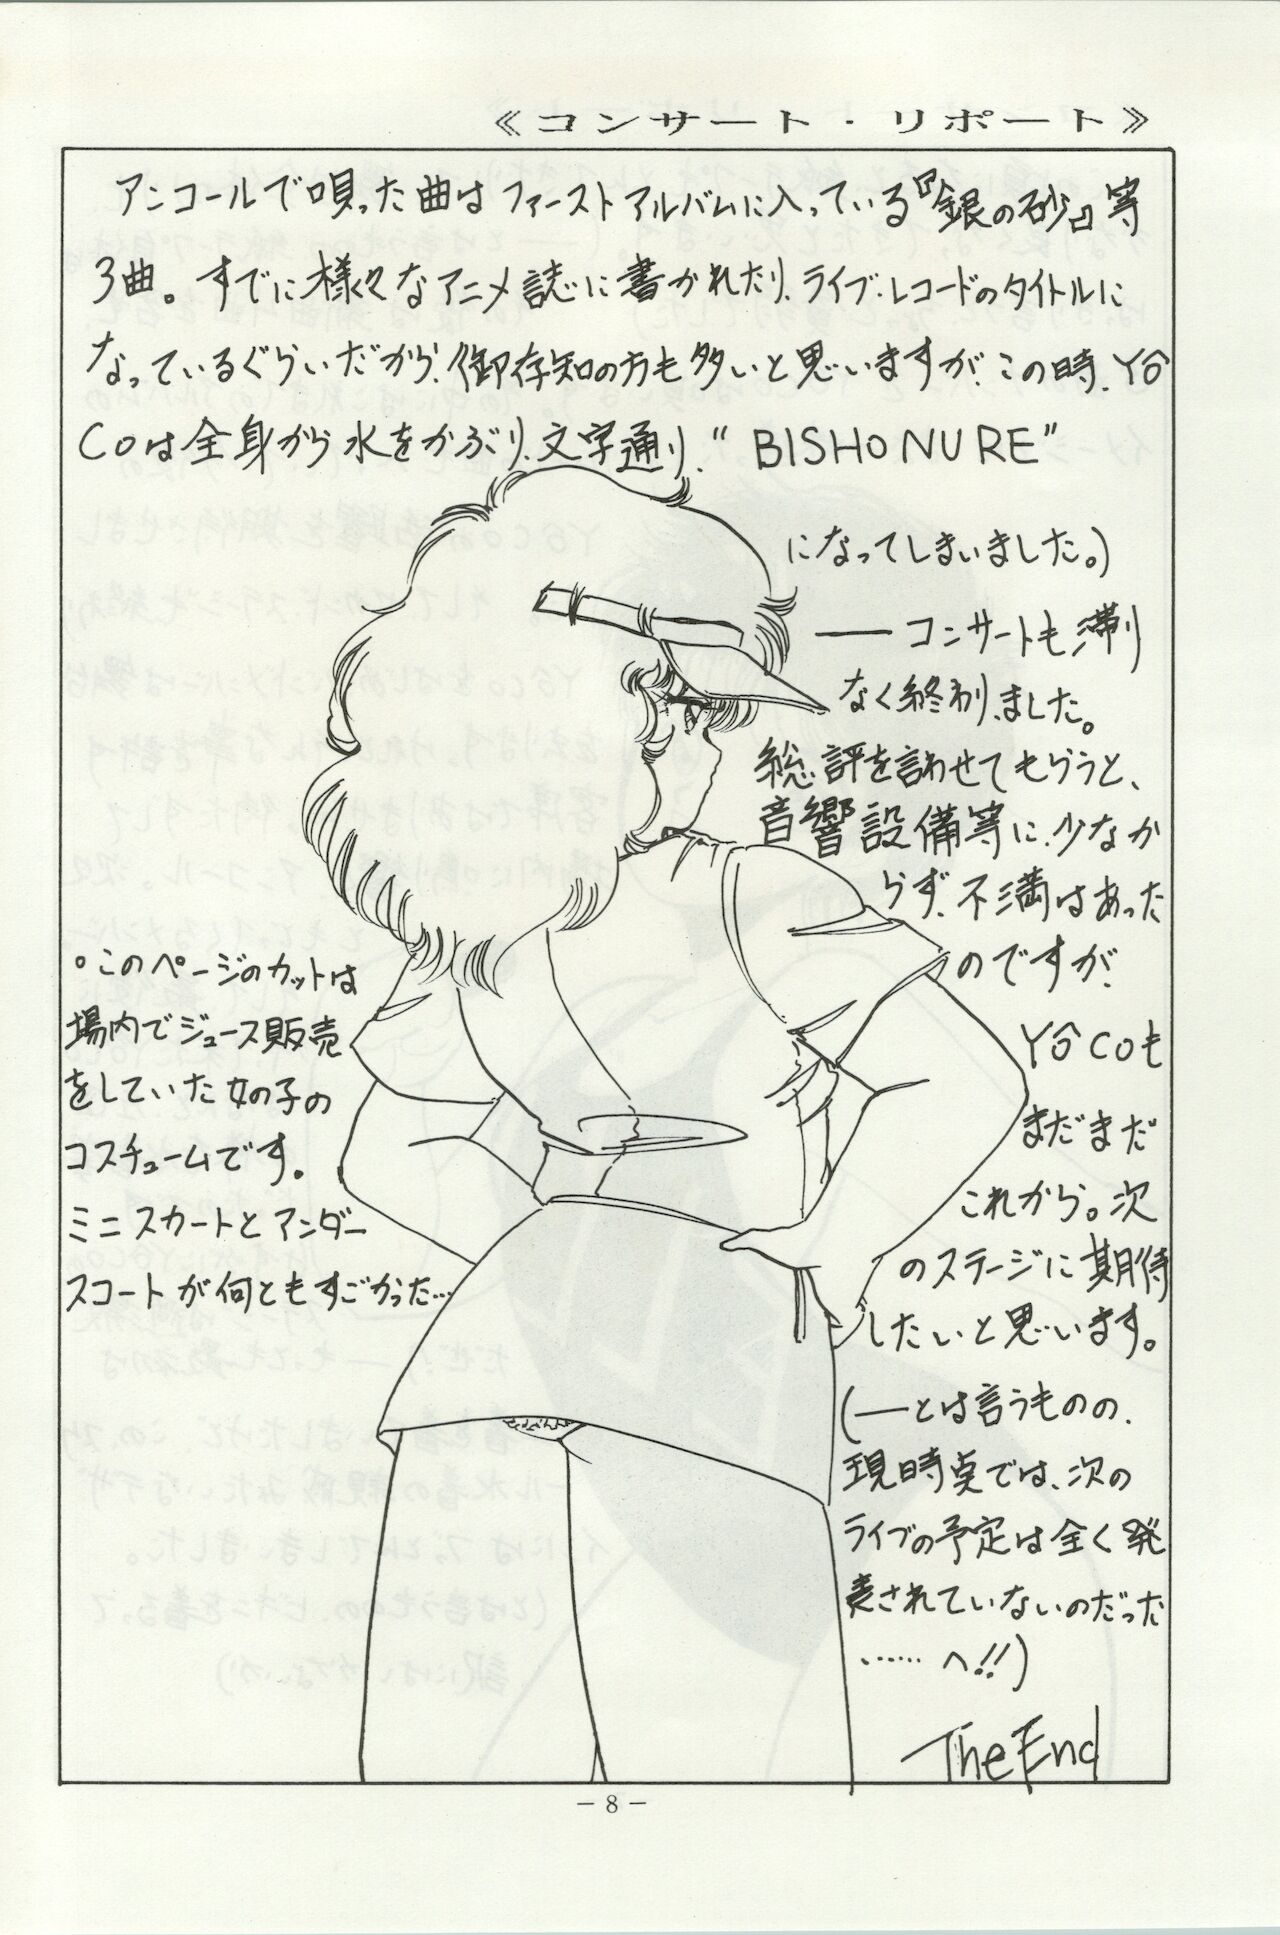 《コンサート・リポート》
アンコールで唄った曲はファーストアルバムに入っている『銀の砂』等
3曲。すでに様々なアニメ誌に書かれたり、ライブ・レコードのタイトルに
なっているぐらいだから、御存知の方も多いと思いますが、この時、YŌ
COは全身から水をかぶり、文字通り、“BISHO NURE”
になってしまいました。)
── コンサートも滞り
なく終わりました。
総評を言わせてもらうと、
音響設備等に、少なか
らず、不満はあった
のですが、
YŌCOも
まだまだ
これから。次
のステージに期待
したいと思います。
(──とは言うものの、
現時点では、次の
ライブの予定は全く発
表されていないのだった
……へ!!)
The End
○このページのカットは
場内でジュース販売
をしていた女の子の
コスチュームです。
ミニスカートとアンダー
スコートが何ともすごかった…
－8－